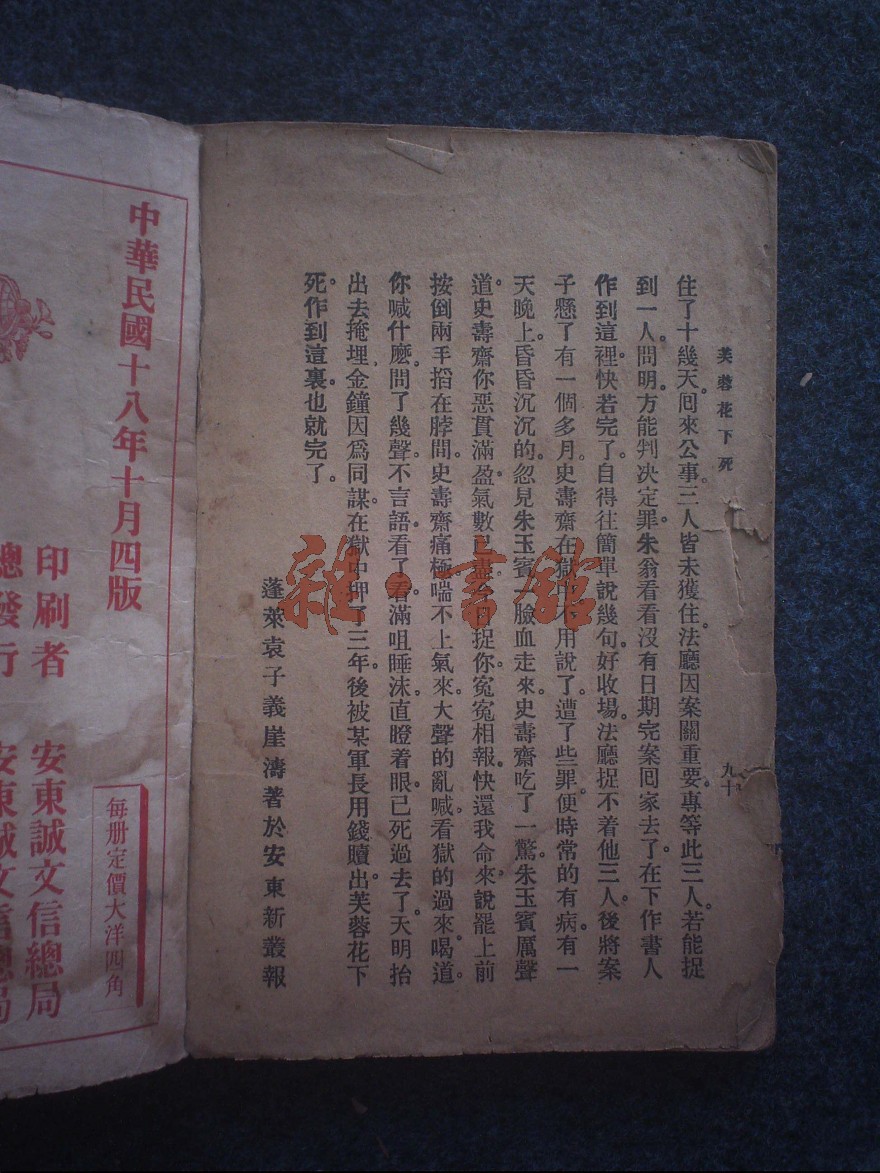 芙蓉花下死
九十
住了十幾天。回來公事。三人皆未獲住。法廳因案關重要。專等此三人。若能捉
到一人。問明。方能判决定罪。朱翁看看沒有日期完案。回家去了。在下作書人
作到這裡。快若完了。自得往簡單說幾句。好收場。法廳捉不着他三人。後將案
子懸了有一個多月。史壽齋在獄中。不用說了。遭了些罪。便時常的有病。有一
天晚上。昏昏沉沉的。忽見朱玉賓一臉血走來。史壽齋吃了一驚。朱玉賓厲聲
道。史壽齋你惡貫滿盈。氣數已盡。今日捉你。冤冤相報。快還我命來。說罷上前
按倒。兩手掐在脖間。史壽齋痛極。喘不上氣來。大聲的亂喊。看獄的過來。喝道。
你喊什麽。問了幾聲。不言語。看了看。滿咀唾沫。直瞪着眼。已死過去了。天明抬
出去掩埋。金鐘因爲同謀。在獄中押了三年。後被某軍長用錢贖出。芙蓉花下
死。作到這裏。也就完了。
蓬萊袁子義崖濤著於安東新叢報
中華民國十八年十月四版
印刷者 安東誠文信總局
總發行 安東誠文信總局
每册定價大洋四角
雜·書館